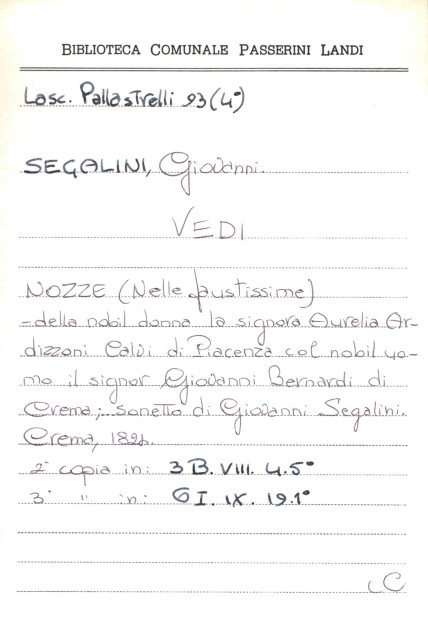 BIBLIOTECA COMUNALE PASSERINI LANDI
Lasc. Pallastrelli 93 (4°)
SEGALINI, Giovanni.
VEDI
NOZZE (Nelle faustissime)
-della nobil donna la signora Aurelia Ar-
dizzoni Calvi di Piacenza col nobil uo-
mo il signor Giovanni Bernardi di
Crema; sonetto di Giovanni Segalini.
Crema,
2° copia in: 3 B. VIII. 4.5°
3° " in: G I. IX. 19.1°
C